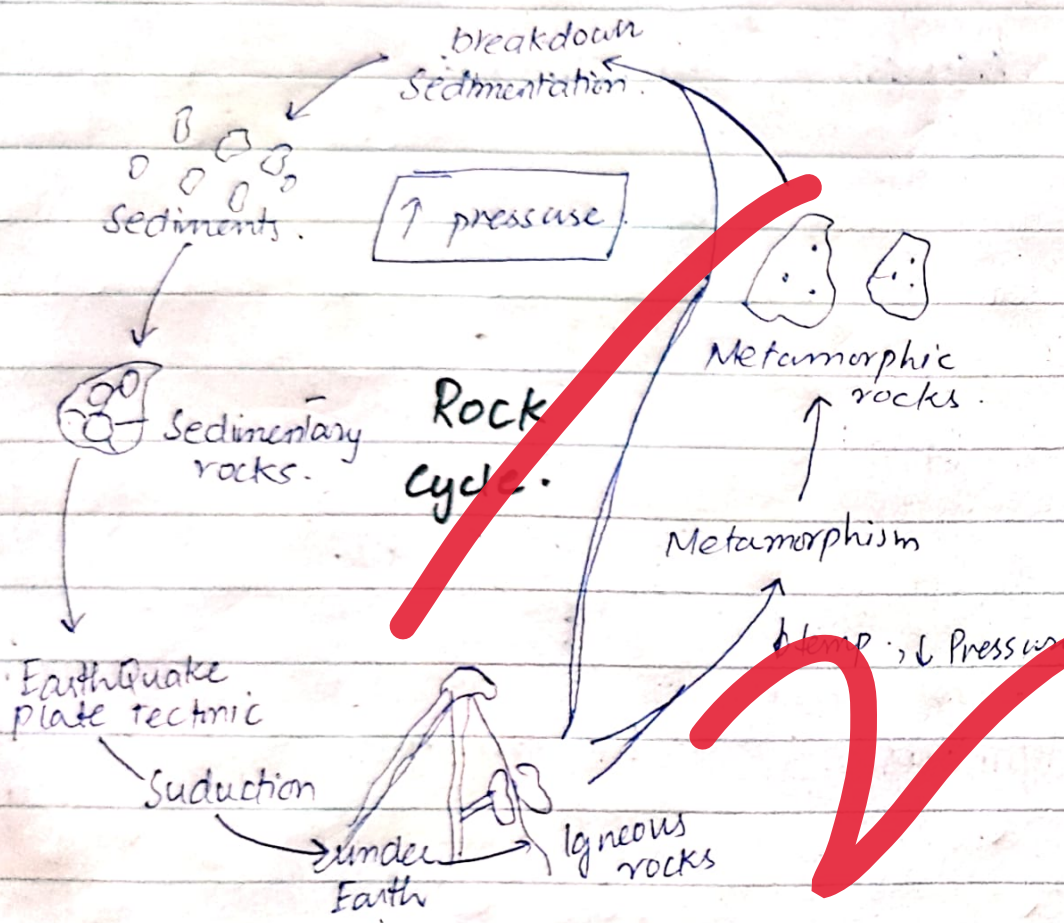 breakdown
Sedimentation.
Sediments.
↑ pressure.
Sedimentary
rocks.
Rock
Cycle.
Metamorphic
rocks.
Metamorphism
temp., ↓ Pressur
EarthQuake
plate Technic
Suduction
under
Earth
Igneous
rocks